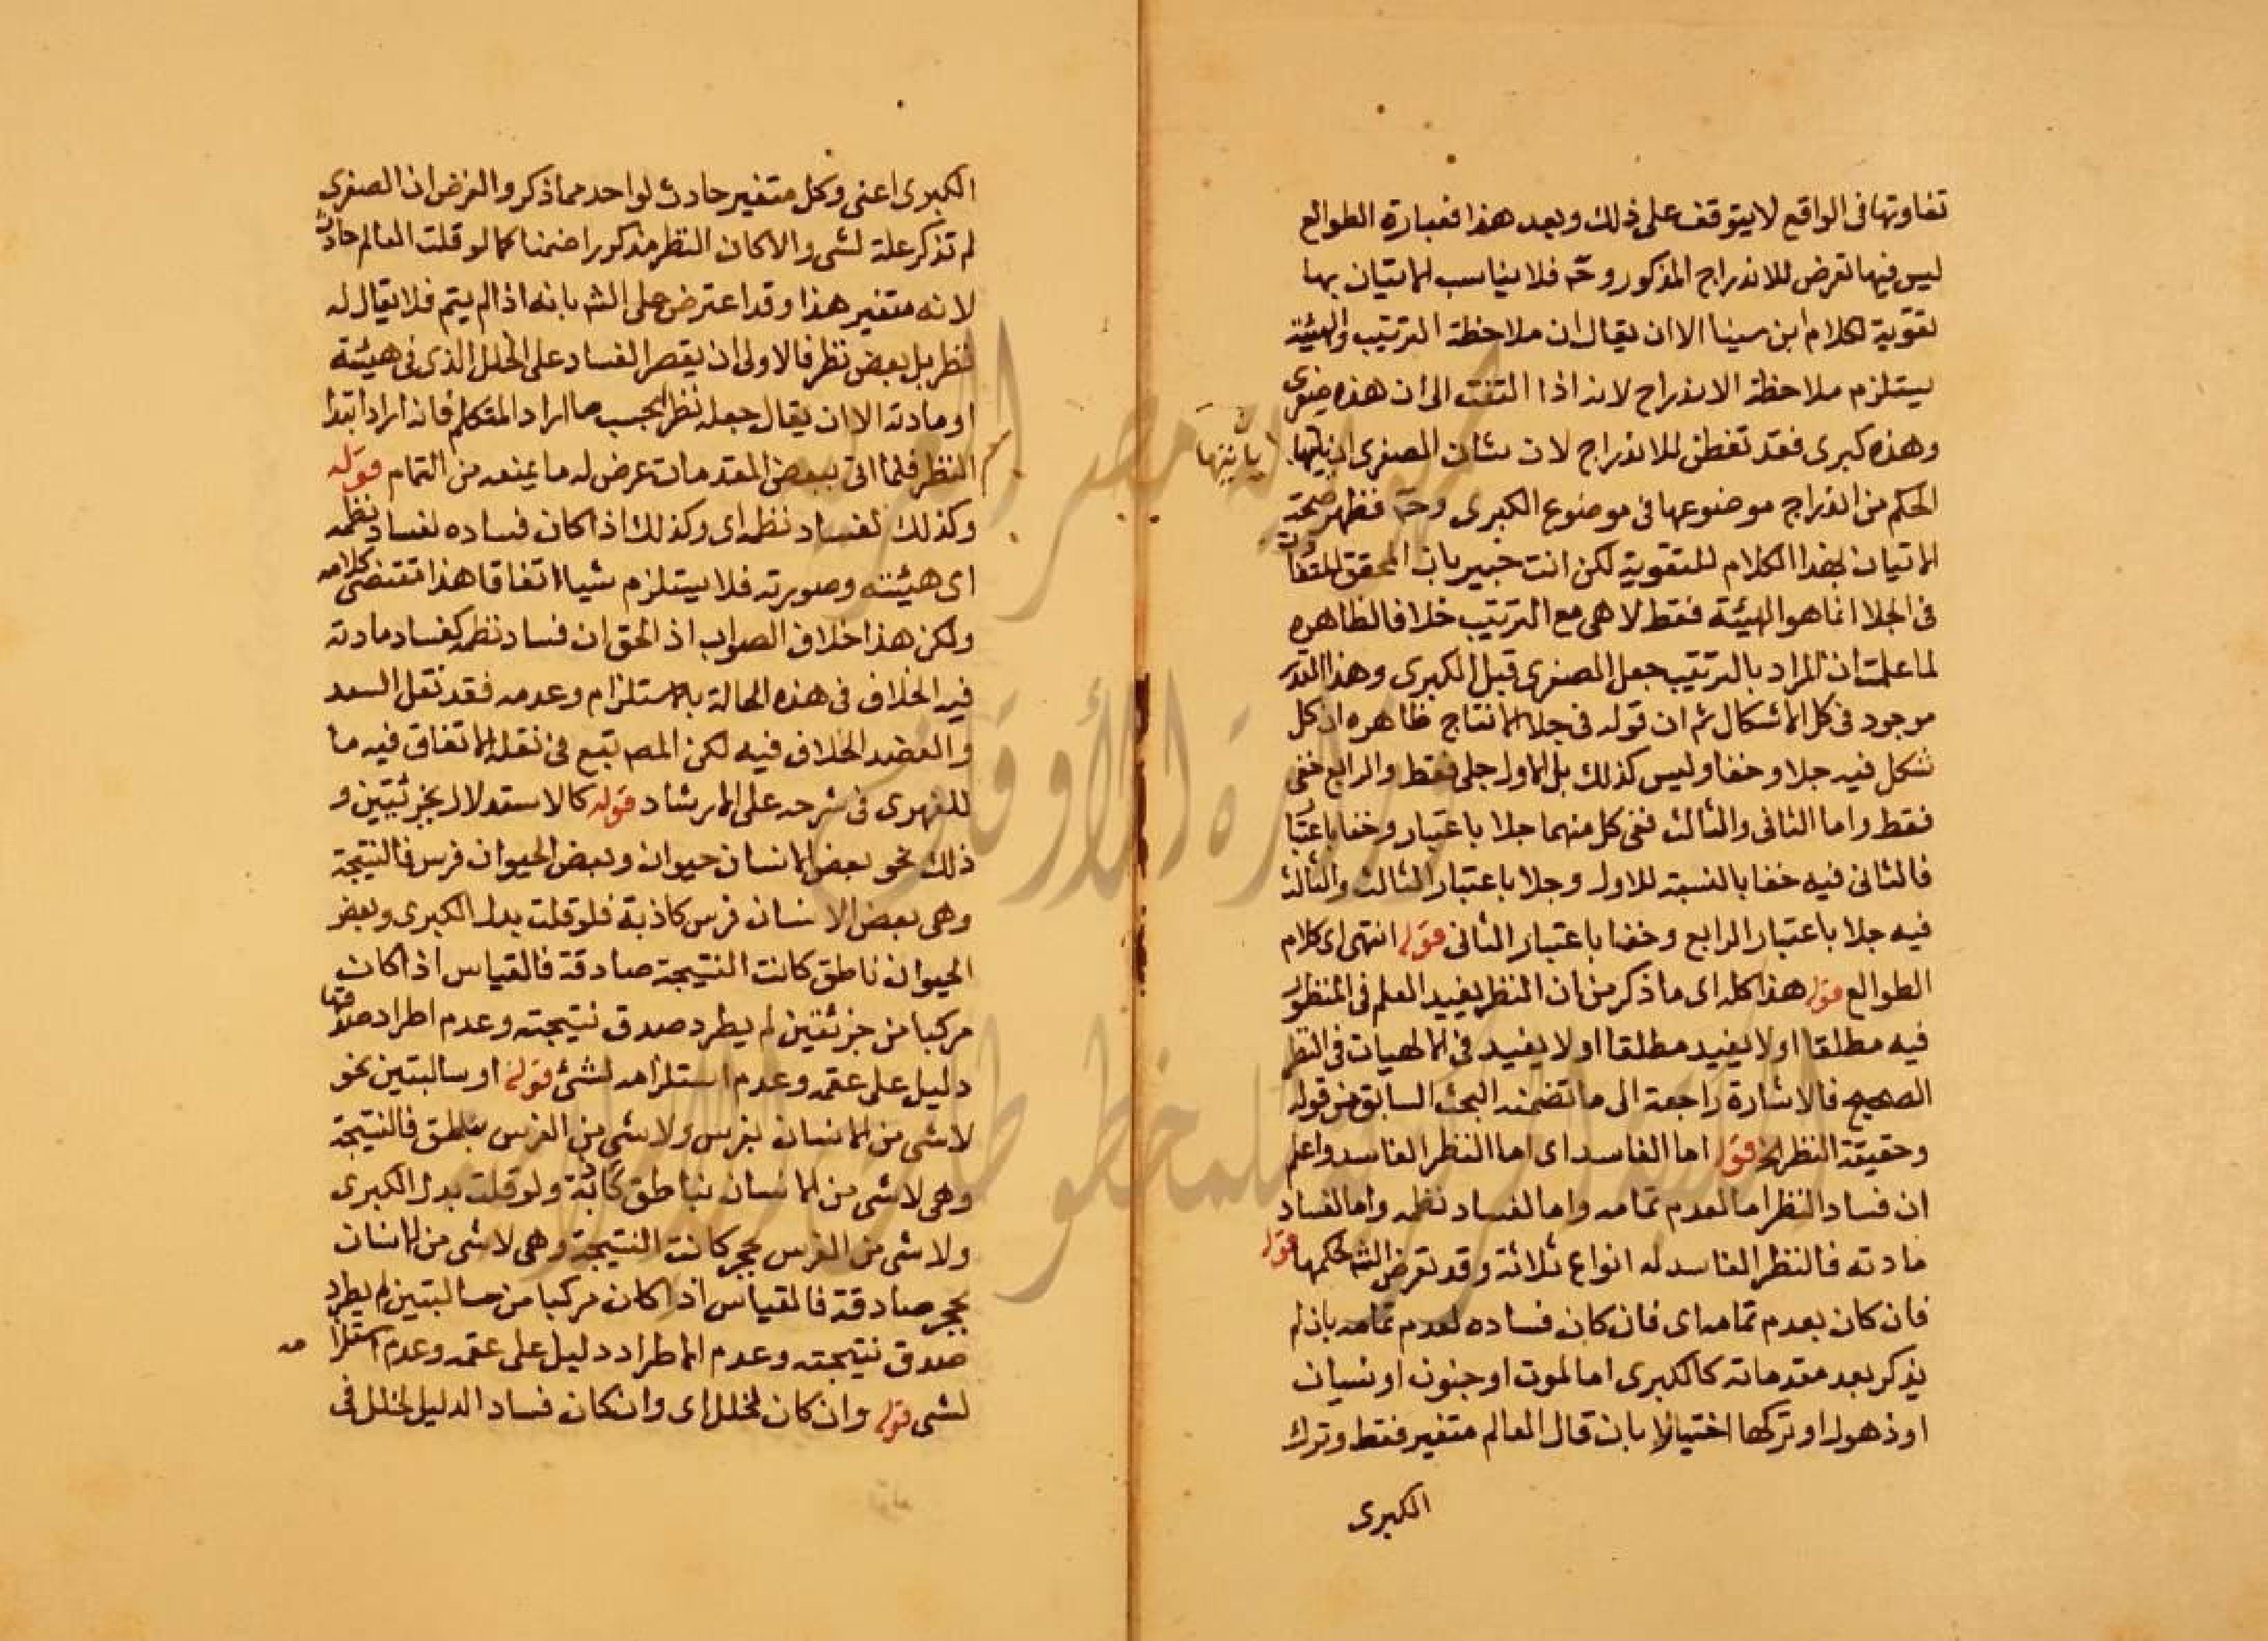 تفاوتها فى الواقع لا يتوقف على ذلك وبعد هذا فعبارة الطوالع
ليس فيها تعرض للاندراج المذكور وحـ فلا يناسب الاتيان بها
تقوية لكلام ابن سينا الا ان يقال ان ملاحظة الترتيب والهيئة
يستلزم ملاحظة الاندراج لانه اذا التفت الى ان هذه صغرى
وهذه كبرى فقد تفطن للاندراج لان شان الصغرى
الحكم من اندراج موضوعها فى موضوع الكبرى وحـ فظهر صحة
الاتيان بهذا الكلام للتقوية لكن انت خبير بان المحقق للتفاوت
فى الجلا انما هو الهيئة فقط لا هى مع الترتيب خلافا لظاهره
لما علمت ان المراد بالترتيب جعل الصغرى قبل الكبرى وهذا القدر
موجود فى كل الاشكال ثم ان قوله فى جلا الانتاج ظاهره ان كل
شكل فيه جلا وخفا وليس كذلك بل الاول جلى فقط والرابع خفى
فقط واما الثانى والثالث ففى كل منهما جلا باعتبار وخفا باعتبا
فالثانى فيه خفا بالنسبة للاول وجلا باعتبار الثالث والثالث
فيه جلا باعتبار الرابع وخفا باعتبار الثانى قوله انتهى اى كلام
الطوالع قوله هذا كله اى ما ذكر من ان النظر يفيد العلم فى المنظور
فيه مطلقا او لا يفيد مطلقا او لا يفيد فى الالهيات فى النظر
الصحيح فالاشارة راجعة الى ما تضمنه البحث السابق من قوله
وحقيقة النظر الخ قوله اما الفاسد اى اما النظر الفاسد واعلم
ان فساد النظر اما لعدم تمامه واما لفساد نظمه واما لفساد
مادته فالنظر الفاسد له انواع ثلاثة وقد تعرض الشـ لحكمها قوله
فان كان بعدم تمامه اى فان كان فساده لعدم تمامه بان لم
يذكر بعد مقدماته كالكبرى اما لموت او جنون او نسيان
او ذهول او تركها اختيارا بان قال العالم متغير فقط وترك
الكبرى
الكبرى اعنى وكل متغير حادث لواحد مما ذكر والغرض ان الصغرى
لم تذكر علة لشى والا كان النظر مذكورا ضمنا كما لو قلت العالم حادث
لانه متغير هذا وقد اعترض على الشـ بانه اذا لم يتم فلا يقال له
نظر بل بعض نظر فالاولى ان يقصر الفساد على الخلل الذى فى هيئته
او مادته الا ان يقال جعله نظرا بحسب ما اراد المتكلم فانه اراد ابتدا
النظر فلما اتى ببعض المقدمات عرض له ما يمنعه من التمام قوله
وكذلك لفساد نظمه اى وكذلك اذا كان فساده لفساد نظمه
اى هيئته وصورته فلا يستلزم شيا اتفاقا هذا مقتضى كلامه
ولكن هذا خلاف الصواب اذ الحق ان فساد نظمه كفساد مادته
فيه الخلاف فى هذه الحالة بالاستلزام وعدمه فقد نقل السعد
والعضد الخلاف فيه لكن المصـ تبع فى نقله الاتفاق فيه ما
للفهرى فى شرحه على الارشاد قوله كالاستدلال بجزئيتين و
ذلك نحو بعض الانسان حيوان وبعض الحيوان فرس فالنتيجة
وهى بعض الانسان فرس كاذبة فلو قلت بدل الكبرى وبعض
الحيوان ناطق كانت النتيجة صادقة فالقياس اذا كان
مركبا من جزئتين لم يطرد صدق نتيجته وعدم اطراد صدقها
دليل على عقمه وعدم استلزامه لشئ قوله او سالبتين نحو
لا شى من الانسان بفرس ولا شى من الفرس بناطق فالنتيجة
وهى لا شى من الانسان بناطق كاذبة ولو قلت بدل الكبرى
ولا شى من الفرس بحجر كانت النتيجة وهى لا شى من الانسان
بحجر صادقة فالقياس اذا كان مركبا من سالبتين لم يطرد
صدق نتيجته وعدم الاطراد دليل على عقمه وعدم استلزا مه
لشى قوله وان كان لخلل اى وان كان فساد الدليل لخلل فى